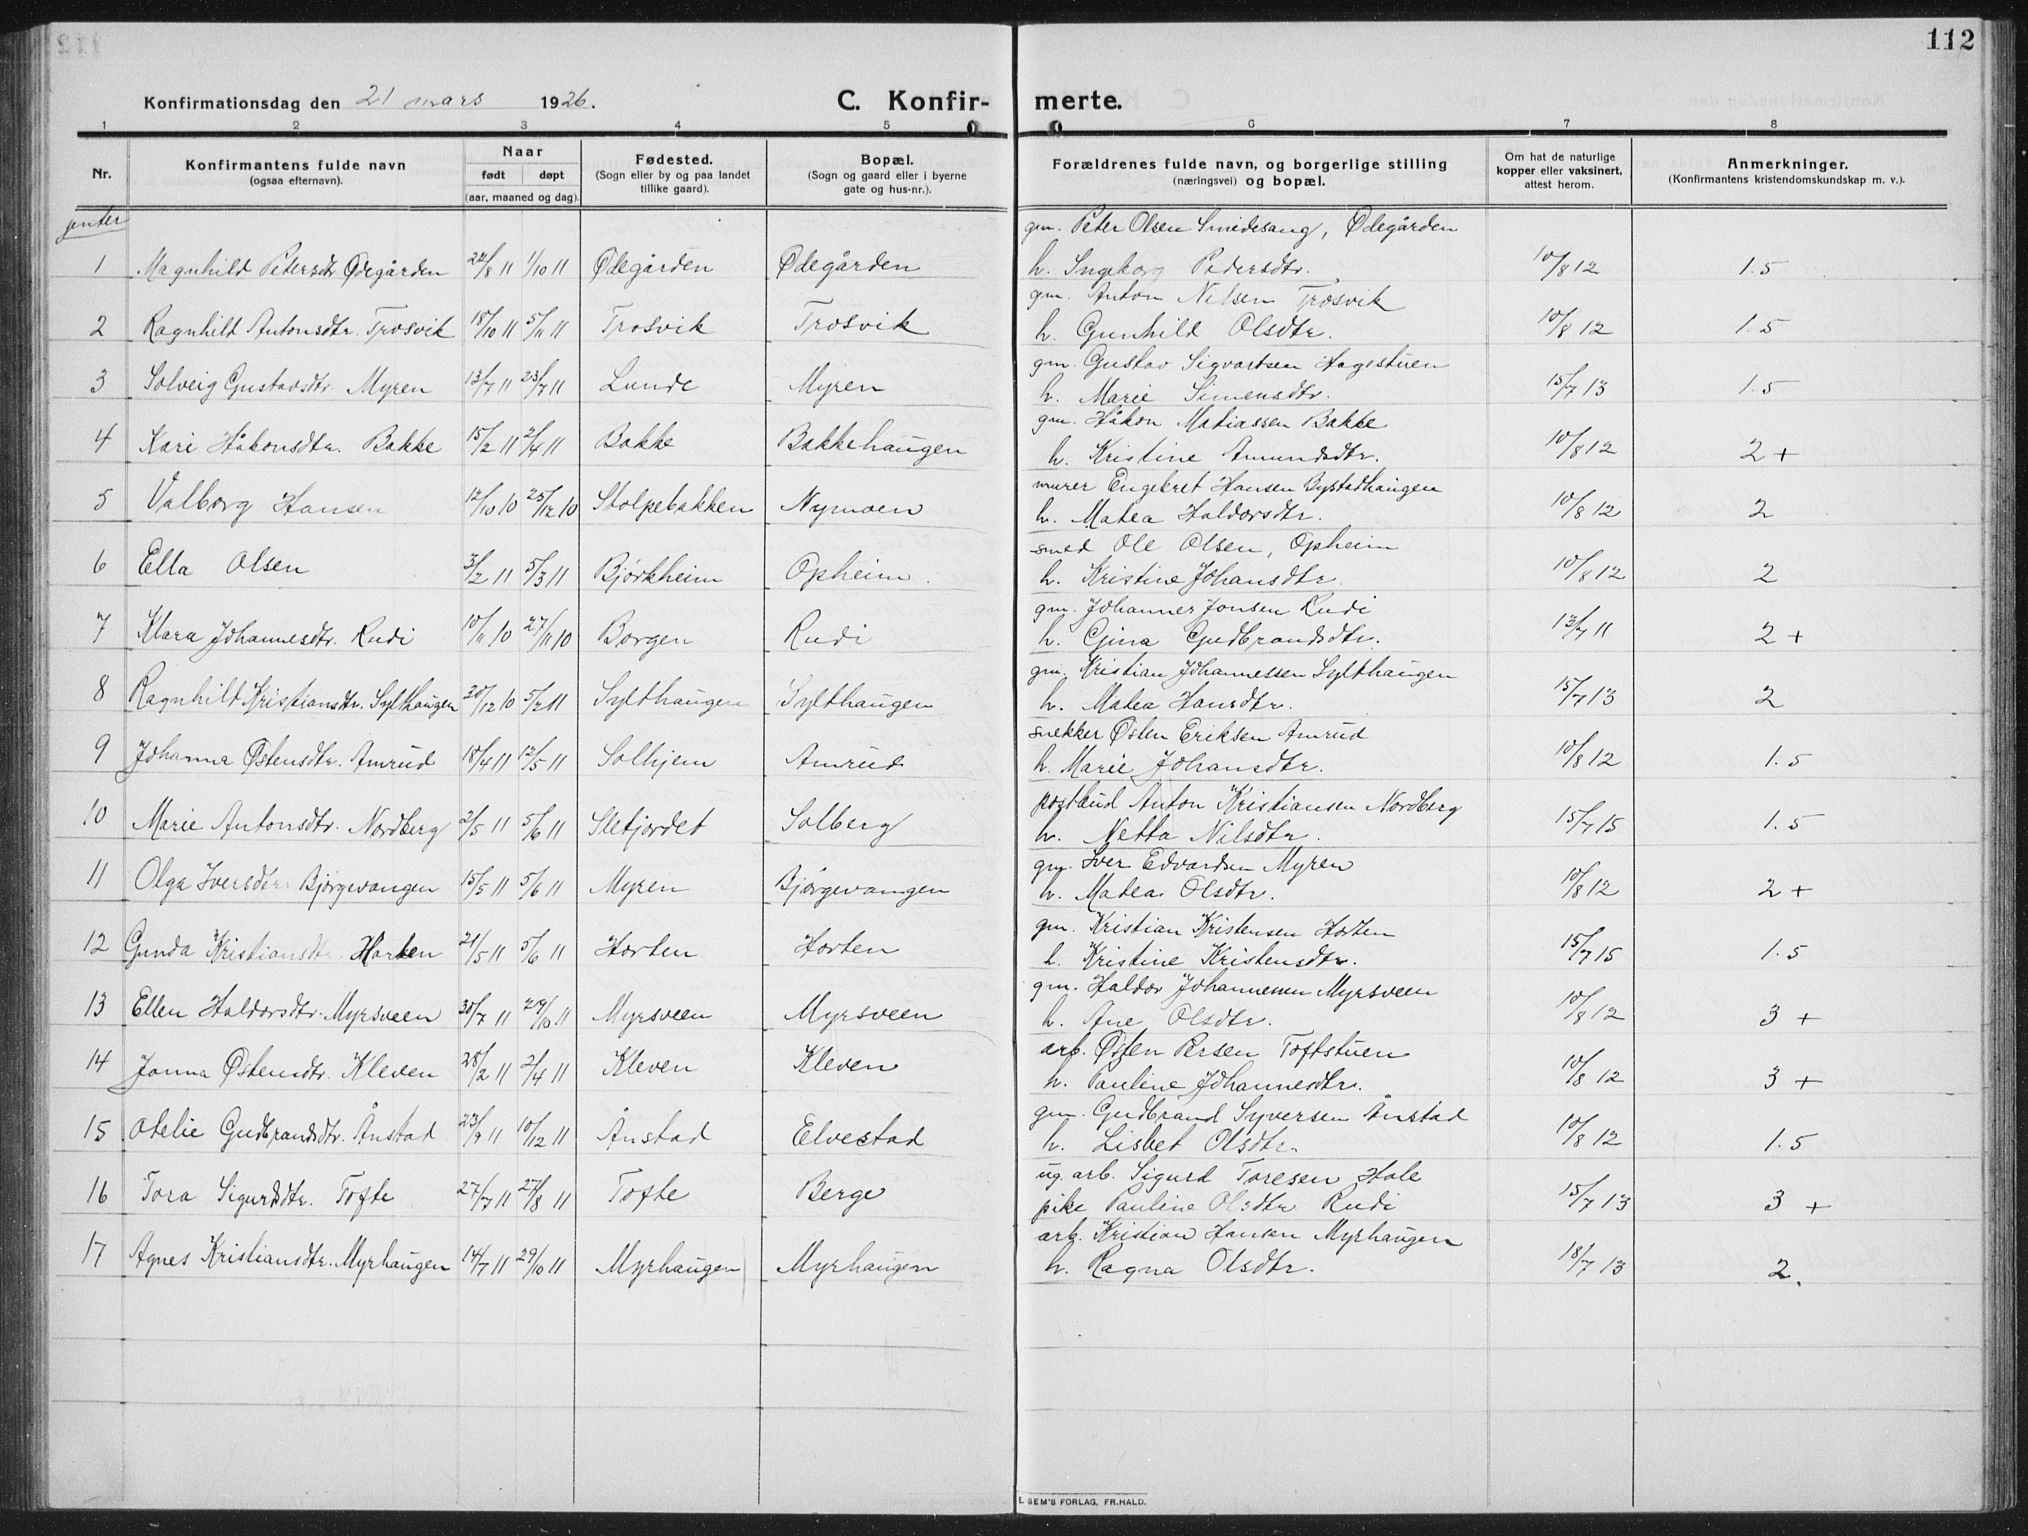 112
Konfirmationsdag den 21 mars 1926. C. Konfir- merte.
1 2 3 4 5 6 7 8
Nr. Konfirmantens fulde navn (ogsaa efternavn). Naar født døpt (aar, maaned og dag). Fødested. (Sogn eller by og paa landet tillike gaard). Bopæl. (Sogn og gaard eller i byerne gate og hus-nr.). Forældrenes fulde navn, og borgerlige stilling (næringsvei) og bopæl. Om hat de naturlige kopper eller vaksinert, attest herom. Anmerkninger. (Konfirmantens kristendomskundskap m. v.).
jenter
gm. Peter Olsen Smedesang, Ødegården
1 Magnhild Petersdtr Ødegården 24/8 11 1/10 11 Ødegården Ødegården h. Ingeborg Pedersdtr. 10/8 12 1.5
gm. Anton Nilsen Trosvik
2 Ragnhild Antonsdtr. Trosvik 18/10 11 5/11 11 Trosvik Trosvik h. Gunhild Olsdtr. 10/8 12 1.5
gm. Gustav Sigvartsen Hagestuen
3 Solveig Gustavsdtr. Myren 13/7 11 23/7 11 Lunde Myren h. Marie Simensdtr. 15/7 13 1.5
gm. Håkon Matiassen Bakke
4 Kari Håkonsdtr. Bakke 15/2 11 2/4 11 Bakke Bakkehaugen h. Kristine Amundsdtr. 10/8 12 2 +
murer Engebret Hansen Bystadhaugen
5 Valborg Hansen 12/10 10 25/12 10 Stolpebakken Nymoen h. Matea Haldorsdtr. 10/8 12 2
smed Ole Olsen, Opheim
6 Ella Olsen 3/2 11 5/3 11 Bjørkheim Opheim. h. Kristine Johansdtr. 10/8 12 2
gm. Johannes Jonsen Rudi
7 Klara Johannesdtr. Rudi 10/11 10 27/11 10 Borgen Rudi h. Gina Gudbrandsdtr. 13/7 11 2 +
gm. Kristian Johannessen Sylthaugen
8 Ragnhild Kristiansdtr. Sylthaugen 30/12 10 5/2 11 Sylthaugen Sylthaugen h. Matea Hansdtr. 15/7 13 2
snekker Østen Eriksen Amrud
9 Johanna Østensdtr. Amrud 18/4 11 12/5 11 Solhjem Amrud h. Marie Johansdtr. 10/8 12 1.5
postbud Anton Kristiansen Nordberg
10 Marie Antonsdtr. Nordberg 2/5 11 5/6 11 Sletjordet Solberg h. Netta Nilsdtr. 15/7 15 1.5
gm. Iver Edvardsen Myren
11 Olga Iversdtr. Bjørgevangen 15/5 11 5/6 11 Myren Bjørgevangen h. Matea Olsdtr. 10/8 12 2 +
gm. Kristian Kristensen Horten
12 Gunda Kristiansdtr. Horten 21/5 11 5/6 11 Horten Horten h. Kristine Kristensdtr. 15/7 15 1.5
gm. Haldor Johannessen Myrsveen
13 Ellen Haldorsdtr. Myrsveen 30/7 11 29/10 11 Myrsveen Myrsveen h. Ane Olsdtr. 10/8 12 3 +
arb. Østen Persen Toftstuen
14 Jonna Østensdtr. Kleven 28/2 11 2/4 11 Kleven Kleven h. Pauline Johannesdtr. 10/8 12 3 +
gm. Gudbrand Syversen Ånstad
15 Otelie Gudbrandsdtr. Ånstad 23/9 11 10/12 11 Ånstad Elvestad h. Lisbet Olsdtr. 10/8 12 1.5
ug. arb. Sigurd Toresen Hole
16 Tora Sigurdsdtr. Tofte 27/7 11 27/8 11 Tofte Berge pike Pauline Olsdtr Rudi 15/7 13 3 +
arb. Kristian Hansen Myrhaugen
17 Agnes Kristiansdtr. Myrhaugen 14/7 11 29/10 11 Myrhaugen Myrhaugen h. Ragna Olsdtr. 18/7 13 2.
E. SEM'S FORLAG, FR.HALD.